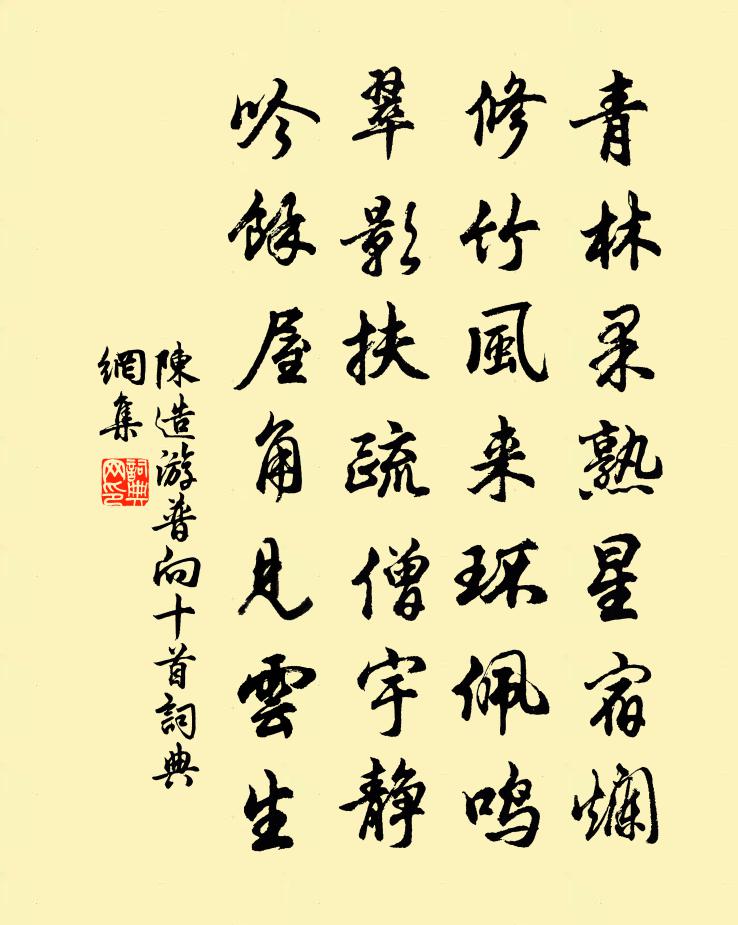 青林果熟星宿爛
修竹風来环佩鸣
翠影扶疏僧宇静
吟餘屋角見雲生
陳造游普向十首詞典
網集
詞典
网印